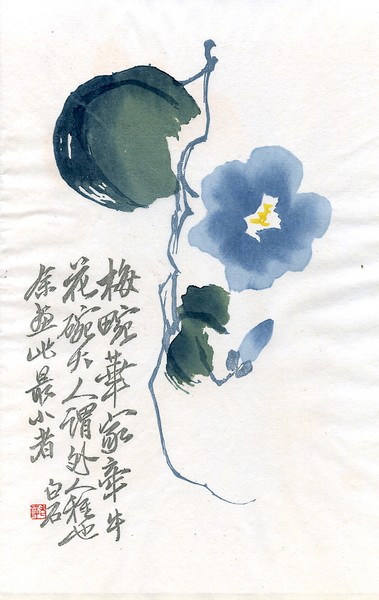 梅畹華家牽牛
花碗大人謂外人種也
余畫此最小者
白石